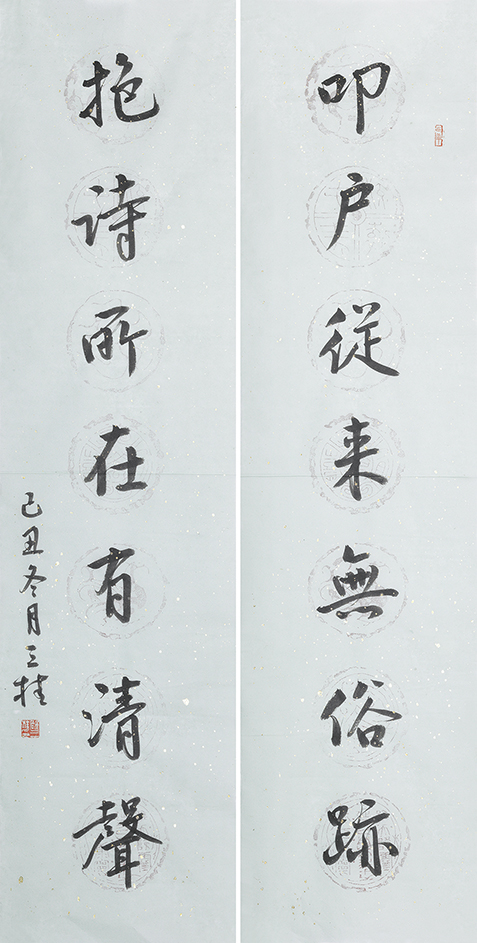 叩户從来無俗跡
抱詩所在有清聲
己丑冬月三桂